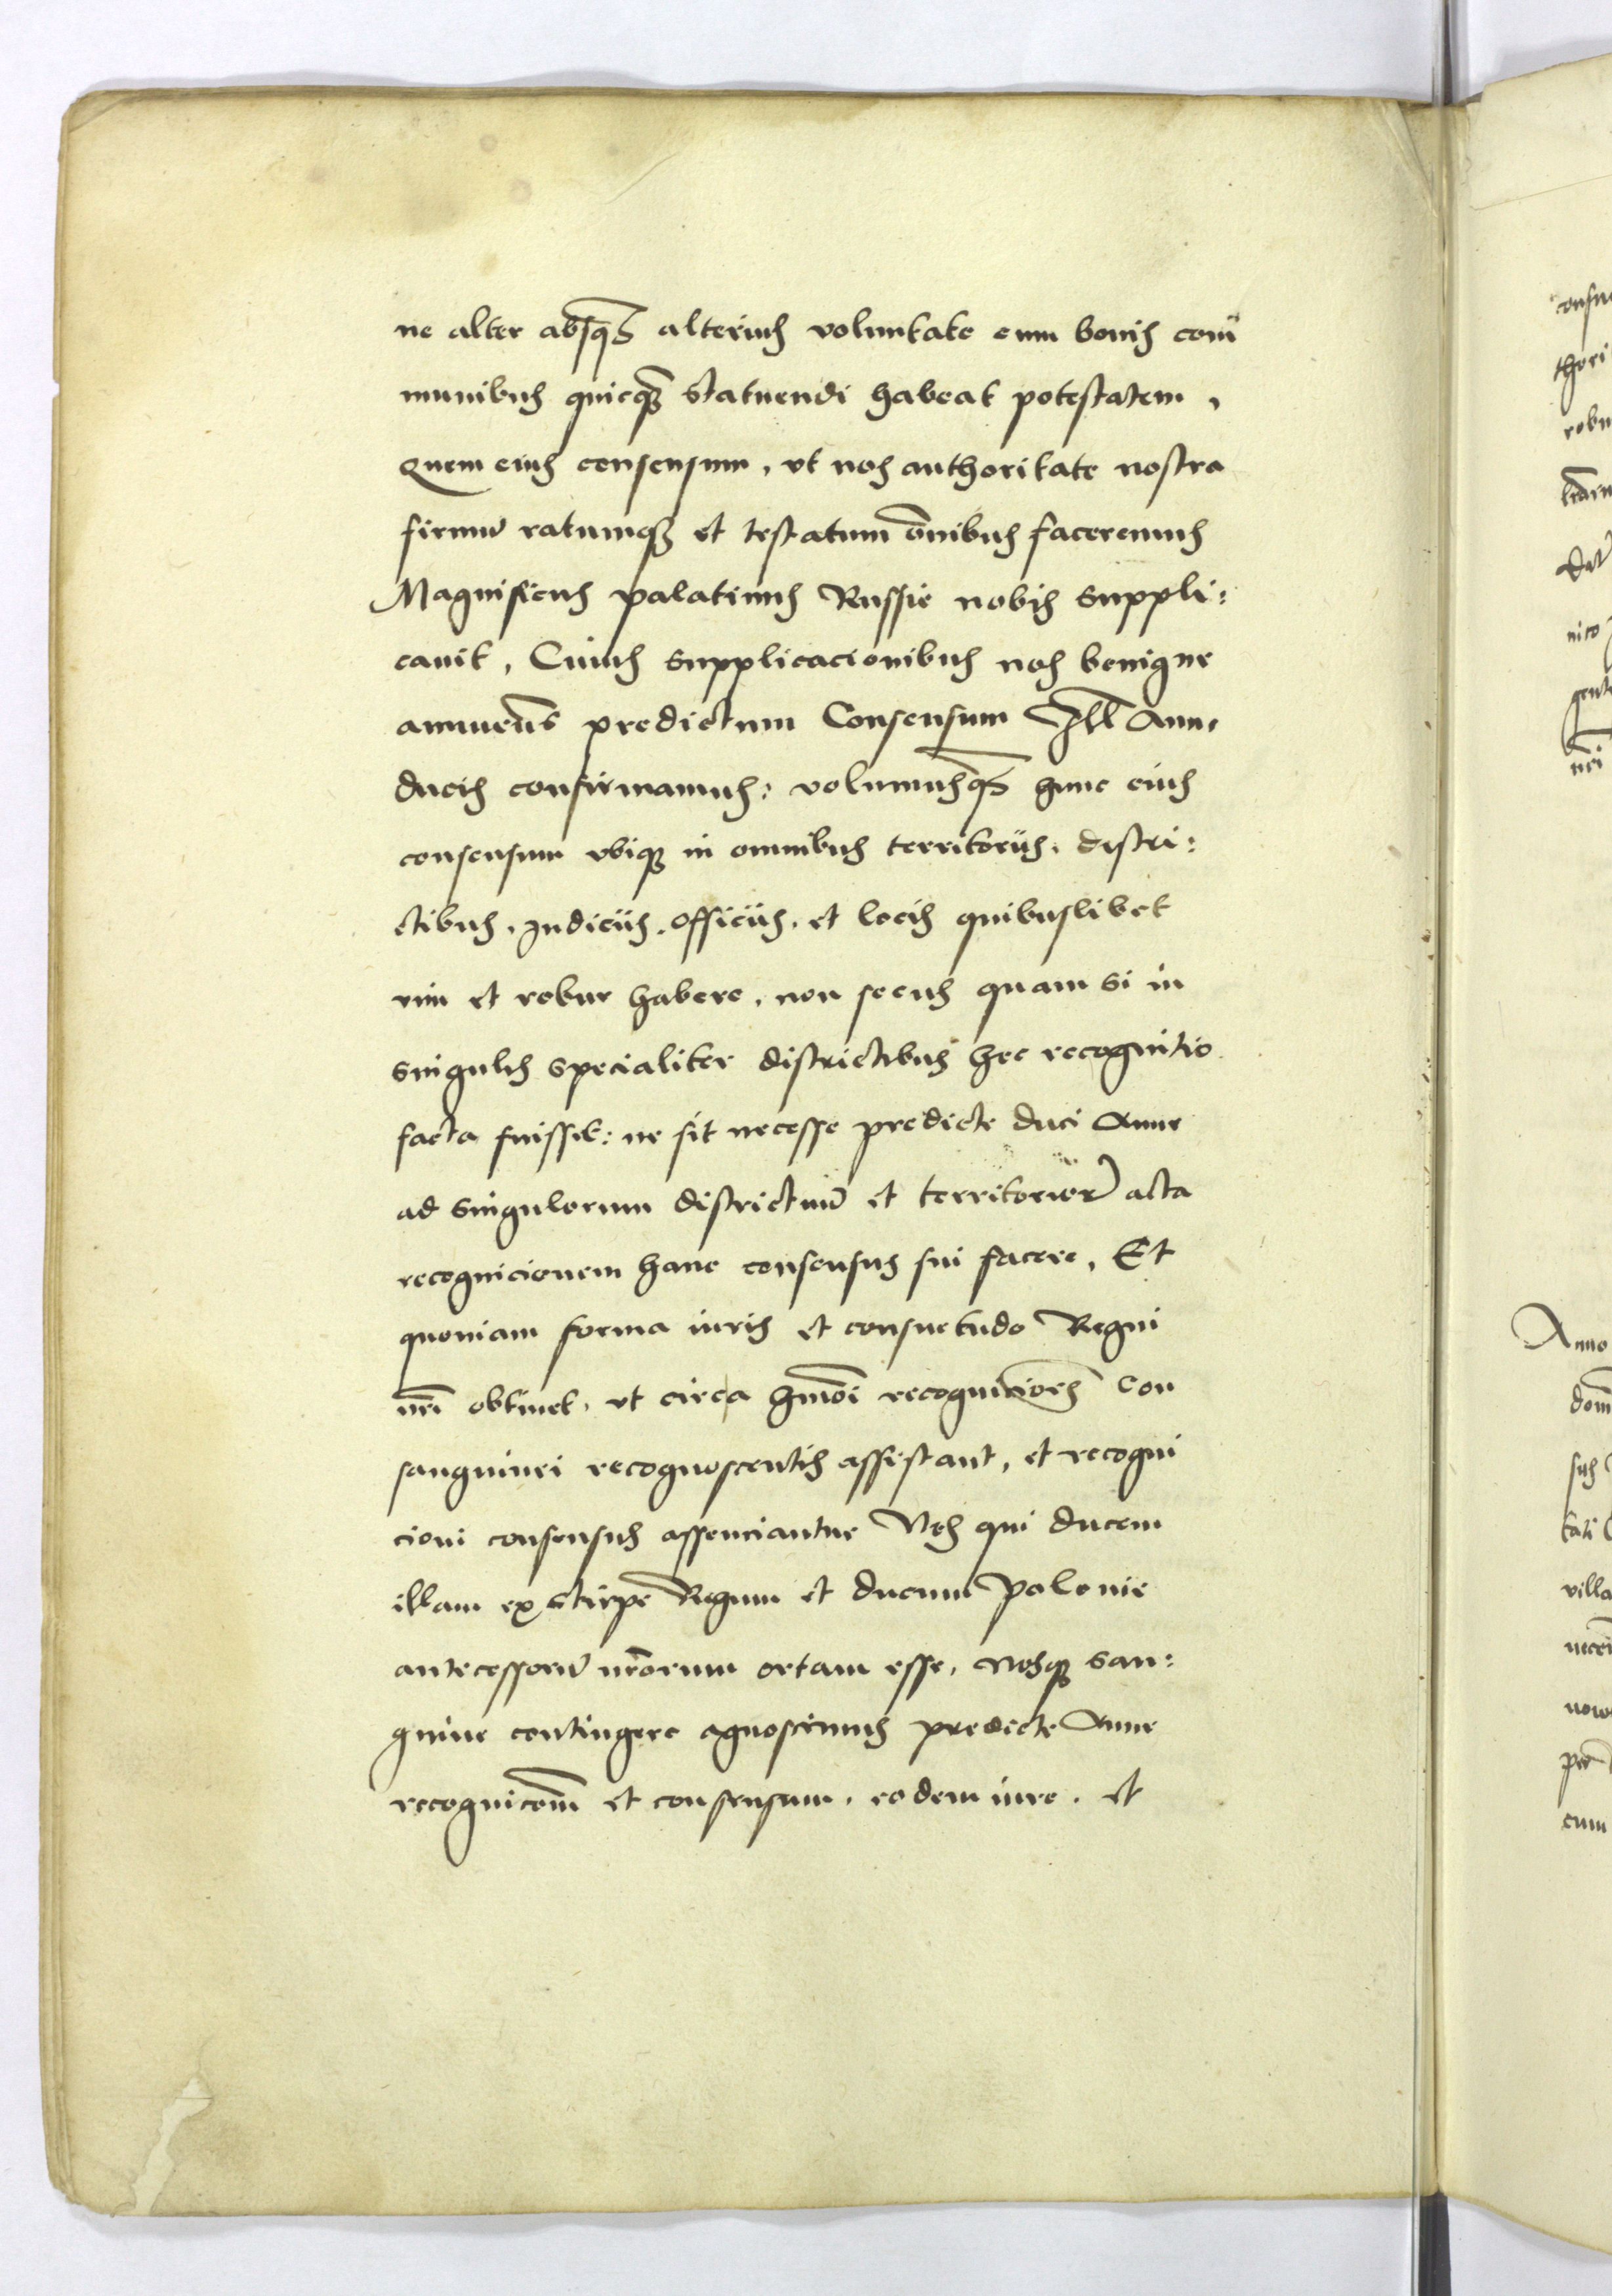 ne alter absq₃ alterius voluntate cum bonis com̄
munibus quicq̃₃ statuendi habeat potestatem,
Quem eius consensum, vt nos authoritate nostra
firmū ratumq₃ et testatum om̄nibus faceremus
Magnificus palatinus Russie nobis suppli:
cavit, Cuius supplicacionibus nos benigne
annuen̄s predictum Consensum Ill Anne
ducis confirmamus: volumusq₃ hunc eius
consensum vbiq₃ in omnibus territoriis, distri:
ctibus, Iudiciis, officiis, et locis quibuslibet
vim et robur habere, non secus quam si in
singulis specialiter districtibus hec recognitio
facta fuisset: ne sit necesse predicte duci Anne
ad singulorum districtuū et territorior̄ acta
recognicionem hanc consensus sui facere, Et
quoniam forma iuris et consuetudo Regni
nr̄i obtinet, vt circa hm̄oi recognicio͞es con
sanguinei recognoscentis assistant, et recogni
cioni consensus assenciantur Nos qui ducem
illam ex stirpe Regum et ducum Polonie
antecessorū nr̄orum ortam esse, Nosq₃ san:
guine contingere agnoscimus predicte Anne
recognico͞em et consensum, eodem iure, et
consu
thori
robu
nico
nr̄i
Anno
dom
sus
tati
villa
now
cum